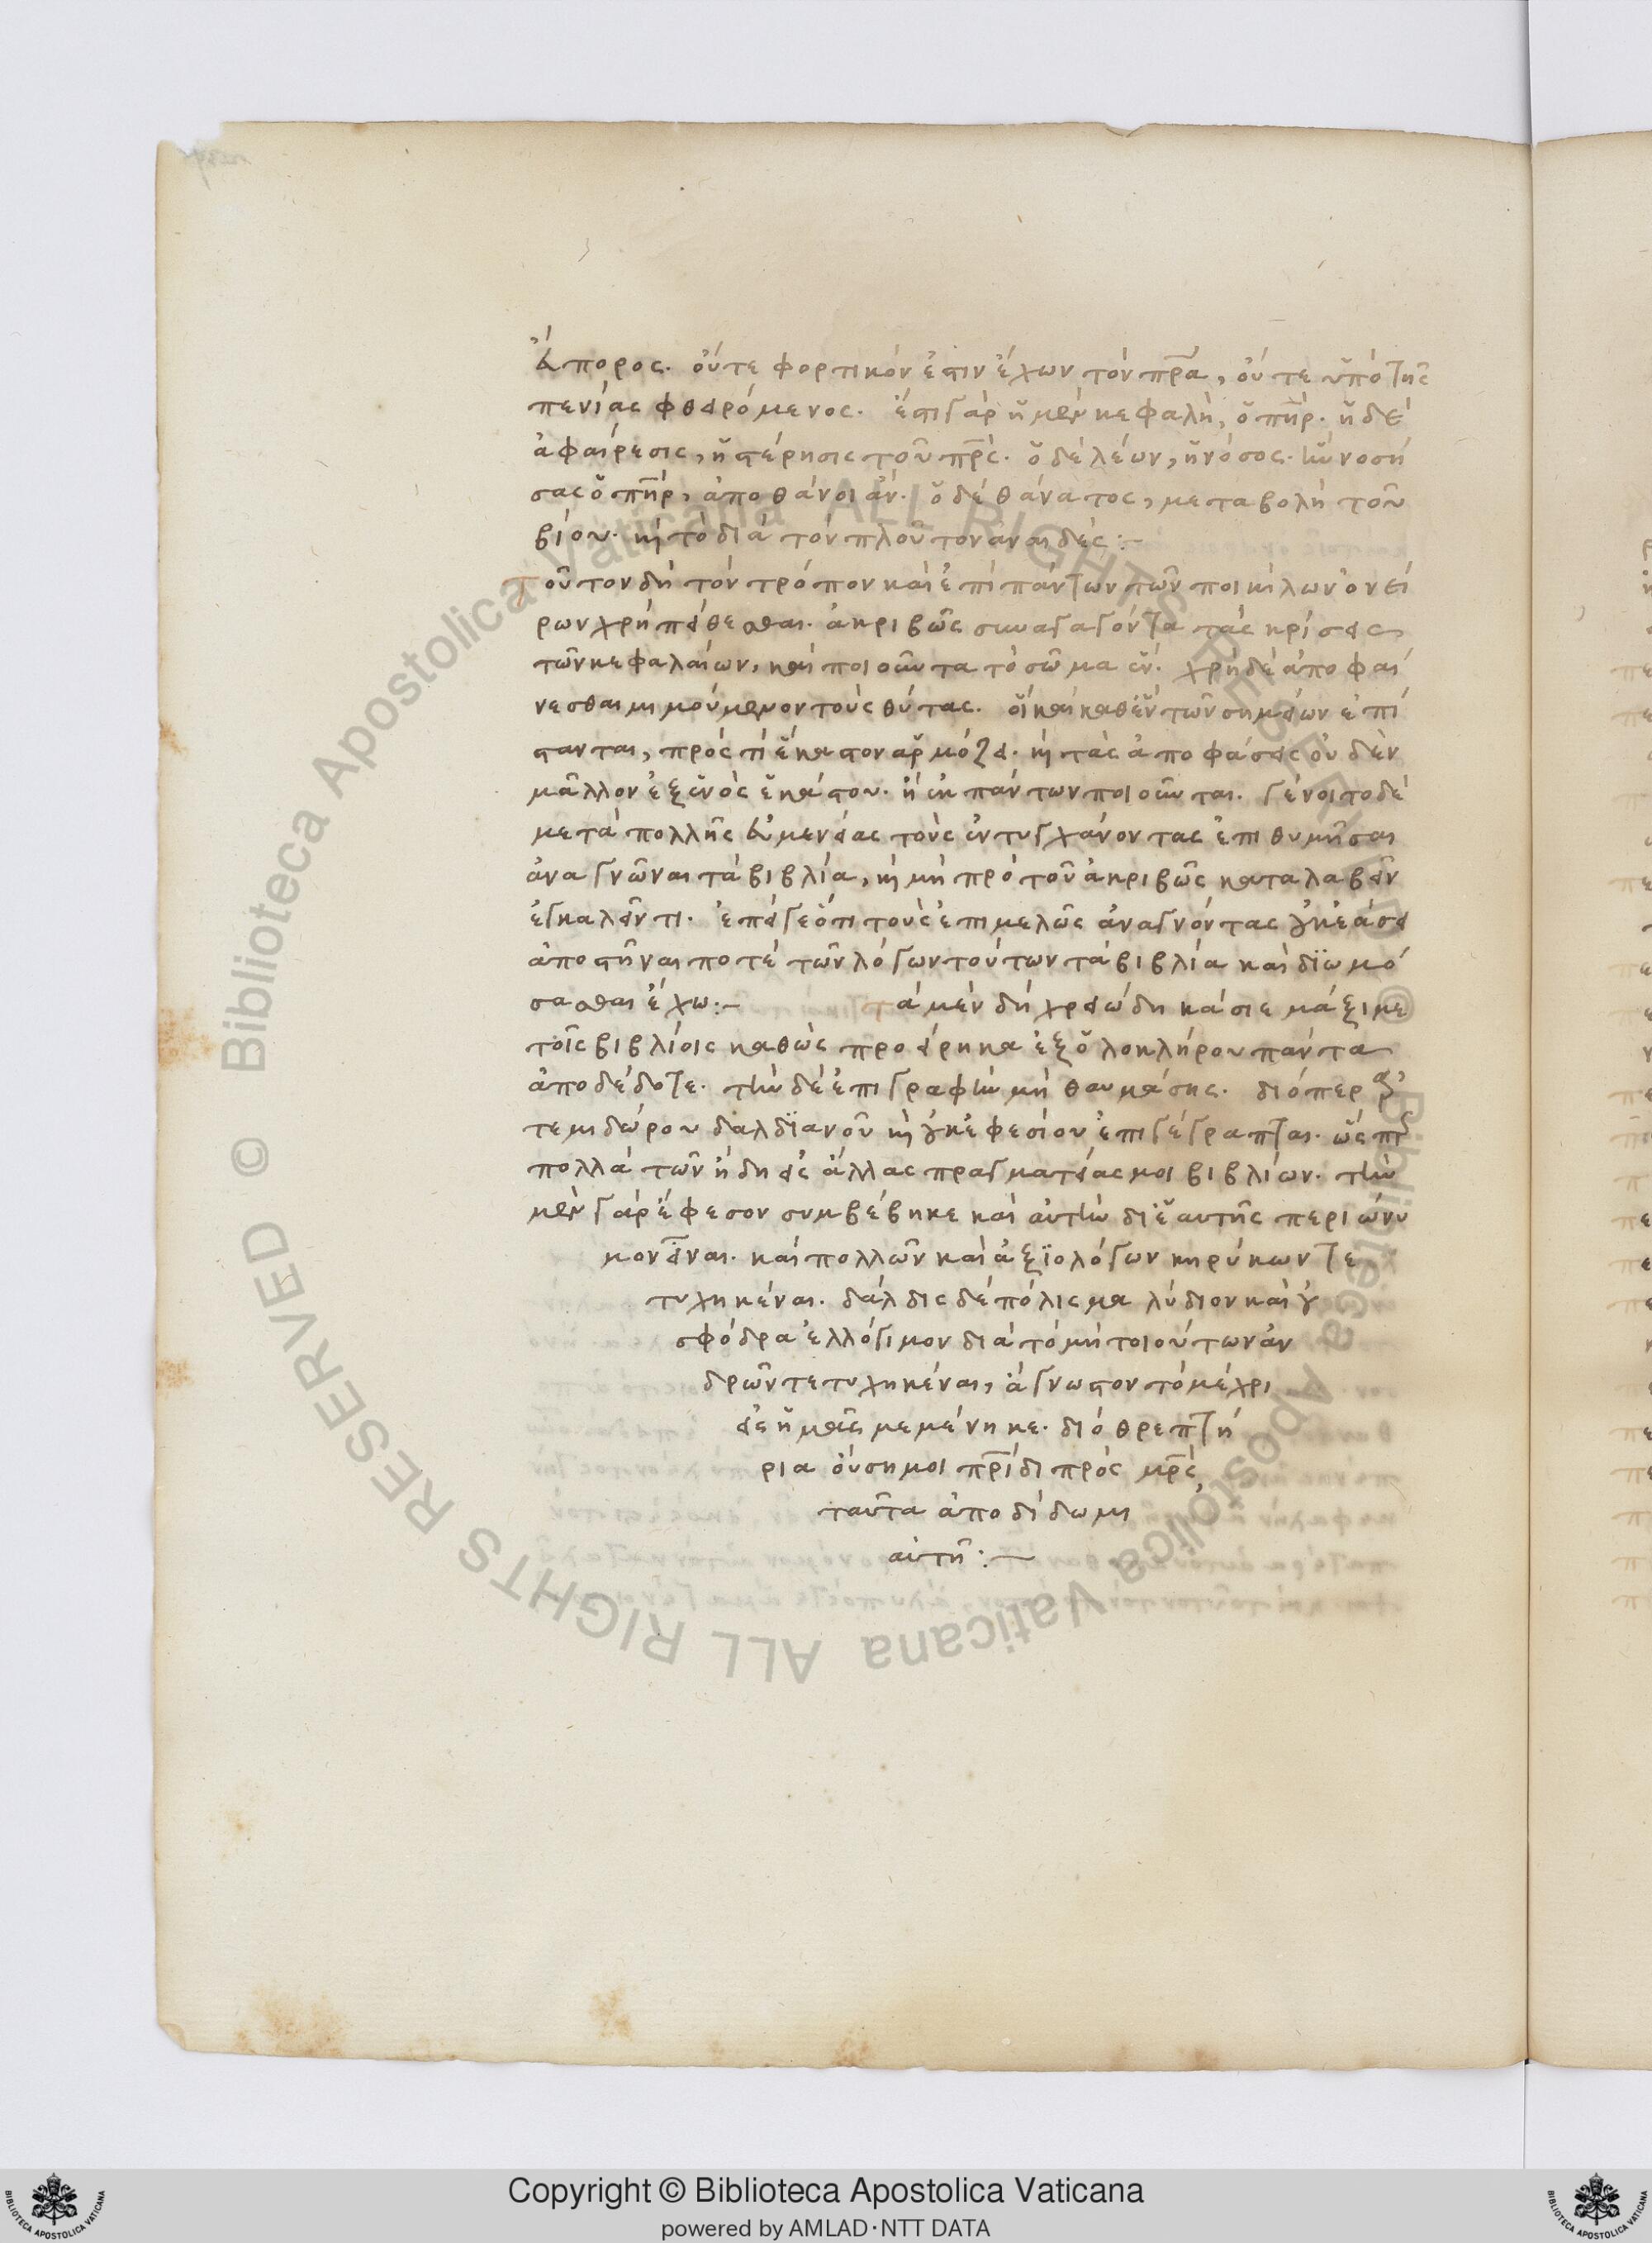 ἄπορος. οὔτε φορτικόν ἐστιν ἔχων τὸν πρᾱ, οὔτε ὑπὸ τῆς
πενίας φθειρόμενος. ἔστι γὰρ ἡ μὲν κεφαλὴ, ὁ πῆρ. ἡ δὲ
ἀφαίρεσις, ἡ στέρησις τοῦ πρς. ὁ δὲ λέων, ἡ νόσος. ἣν νοσή
σας ὁ πῆρ, ἀποθάνοι ἄν. ὁ δὲ θάνατος, μεταβολὴ τοῦ
βίου. καὶ τὸ διὰ τὸν πλοῦτον ἀναιδές:–
Τοῦτον δὴ τὸν τρόπον καὶ ἐπὶ πάντων τῶν ποικίλων ὀνεί
ρων χρὴ πείθεσθαι. ἀκριβῶς συναγαγόντα τὰς κρίσεις
τῶν κεφαλαίων, καὶ ποιοῦντα τὸ σῶμα ἕν. χρὴ δὲ ἀποφαί
νεσθαι μιμούμενον τοὺς θύτας. οἳ καὶ καθὲν τῶν σημείων ἐπί
στανται, πρὸς τί ἕκαστον ἁρμόζει. καὶ τὰς ἀποφάσεις οὐδὲν
μᾶλλον ἐξ ἑνὸς ἑκάστου. ἢ ἐκ πάντων ποιοῦνται. γένοιτο δὲ
μετὰ πολλῆς εὐμενείας τοὺς ἐντυγχάνοντας ἐπιθυμῆσαι
ἀναγνῶναι τὰ βιβλία, καὶ μὴ πρὸ τοῦ ἀκριβῶς καταλαβεῖν
ἐγκαλεῖν τι. ἐπεί γε ὅτι τοὺς ἐπιμελῶς ἀναγνόντας οὐκ ἐάσει
ἀποστῆναι ποτὲ τῶν λόγων τούτων τὰ βιβλία καὶ διωμό
σασθαι ἔχω:– τὰ μὲν δὴ χρειώδη κάσιε μάξιμε
τοῖς βιβλίοις καθὼς προείρηκα ἐξ ὁλοκλήρου πάντα
ἀποδέδοτε. τὴν δὲ ἐπιγραφὴν μὴ θαυμάσῃς. διόπερ ἀρ
τεμιδώρου δαλδιανοῦ καὶ οὐκ ἐφεσίου ἐπιγέγραπται. ὥσπερ
πολλὰ τῶν ἤδη εἰς ἄλλας πραγματείας μοι βιβλίων. τὴν
μὲν γὰρ ἔφεσον συμβέβηκε καὶ αὐτὴν δι' ἑαυτῆς περιώνυ
μον εἶναι. καὶ πολλῶν καὶ ἀξιολόγων κηρύκων τε
τυχηκέναι. δάλδις δὲ πόλισμα λύδιον καὶ οὐ
σφόδρα ἐλλόγιμον διὰ τὸ μὴ τοιούτων ἀν
δρῶν τετυχηκέναι, ἄγνωστον τὸ μέχρι
εἰς ἡμᾶς μεμένηκε. διὸ θρεπτή
ρια οὔσῃ μοι πρίδι πρὸς μρς
ταῦτα ἀποδίδωμι
αὐτῇ:–
Copyright © Biblioteca Apostolica Vaticana
powered by AMLAD·NTT DATA